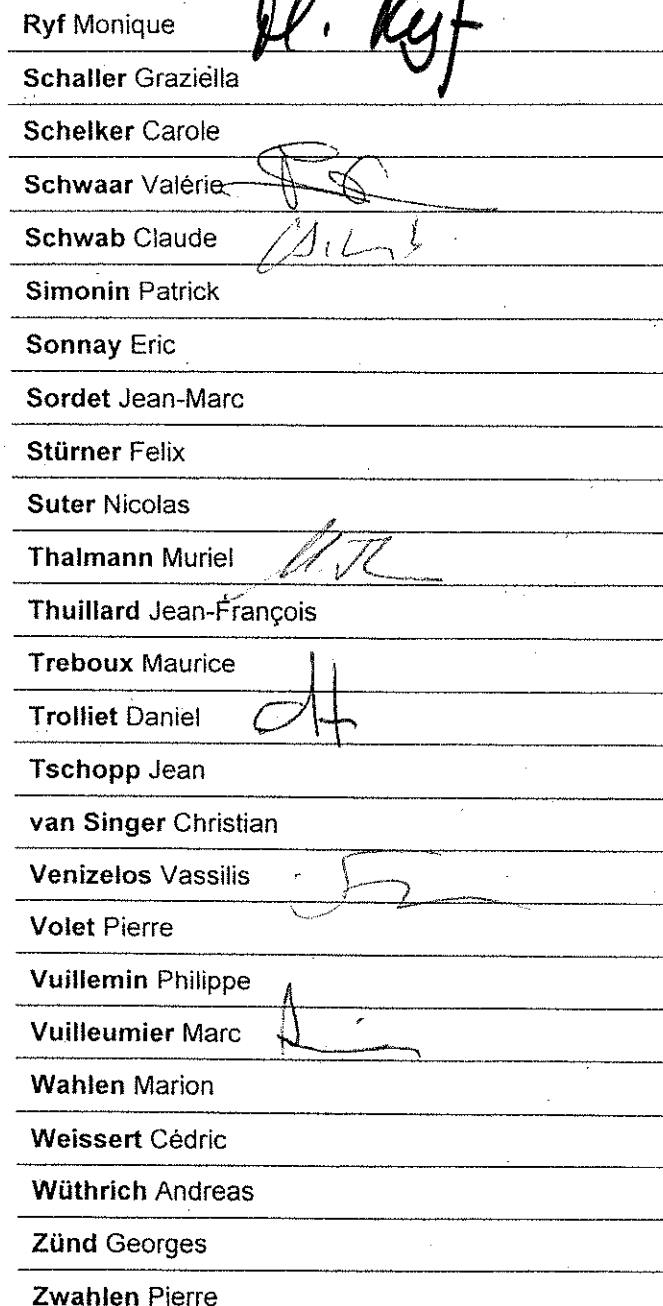 Ryf Monique M. Ryf
Schaller Graziella
Schelker Carole
Schwaar Valérie
Schwab Claude
Simonin Patrick
Sonnay Eric
Sordet Jean-Marc
Stürner Felix
Suter Nicolas
Thalmann Muriel
Thuillard Jean-François
Treboux Maurice
Trolliet Daniel
Tschopp Jean
van Singer Christian
Venizelos Vassilis
Volet Pierre
Vuillemin Philippe
Vuilleumier Marc
Wahlen Marion
Weissert Cédric
Wüthrich Andreas
Zünd Georges
Zwahlen Pierre